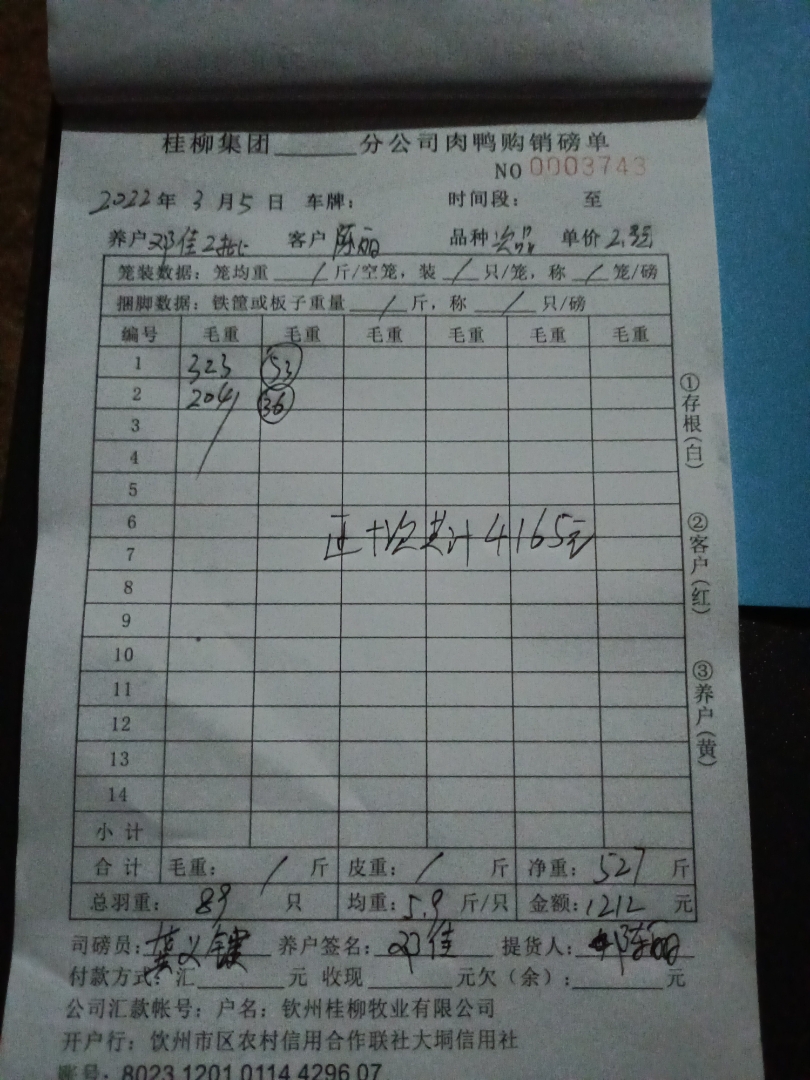 桂柳集团______分公司肉鸭购销磅单
NO 0003743
2022年 3月5日 车牌: 时间段: 至
养户 邓佳2批 客户 陈丽 品种 次品 单价 2.3
笼装数据: 笼均重 / 斤/空笼, 装 / 只/笼, 称 / 笼/磅
捆脚数据: 铁筐或板子重量 / 斤, 称 / 只/磅
编号 毛重 毛重 毛重 毛重 毛重 毛重
1 323 53
2 204 36
3
4
5
6
正+次共计4165元
7
8
9
10
11
12
13
14
小计
合计 毛重: / 斤 皮重: / 斤 净重: 527 斤
总羽重: 89 只 均重: 5.9 斤/只 金额: 1212 元
司磅员: 养户签名: 邓佳 提货人: 陈丽
付款方式: 汇______元 收现______元欠(余):______元
公司汇款帐号: 户名: 钦州桂柳牧业有限公司
开户行: 钦州市区农村信用合作联社大垌信用社
账号: 8023 1201 0114 4296 07
①存根(白)
②客户(红)
③养户(黄)